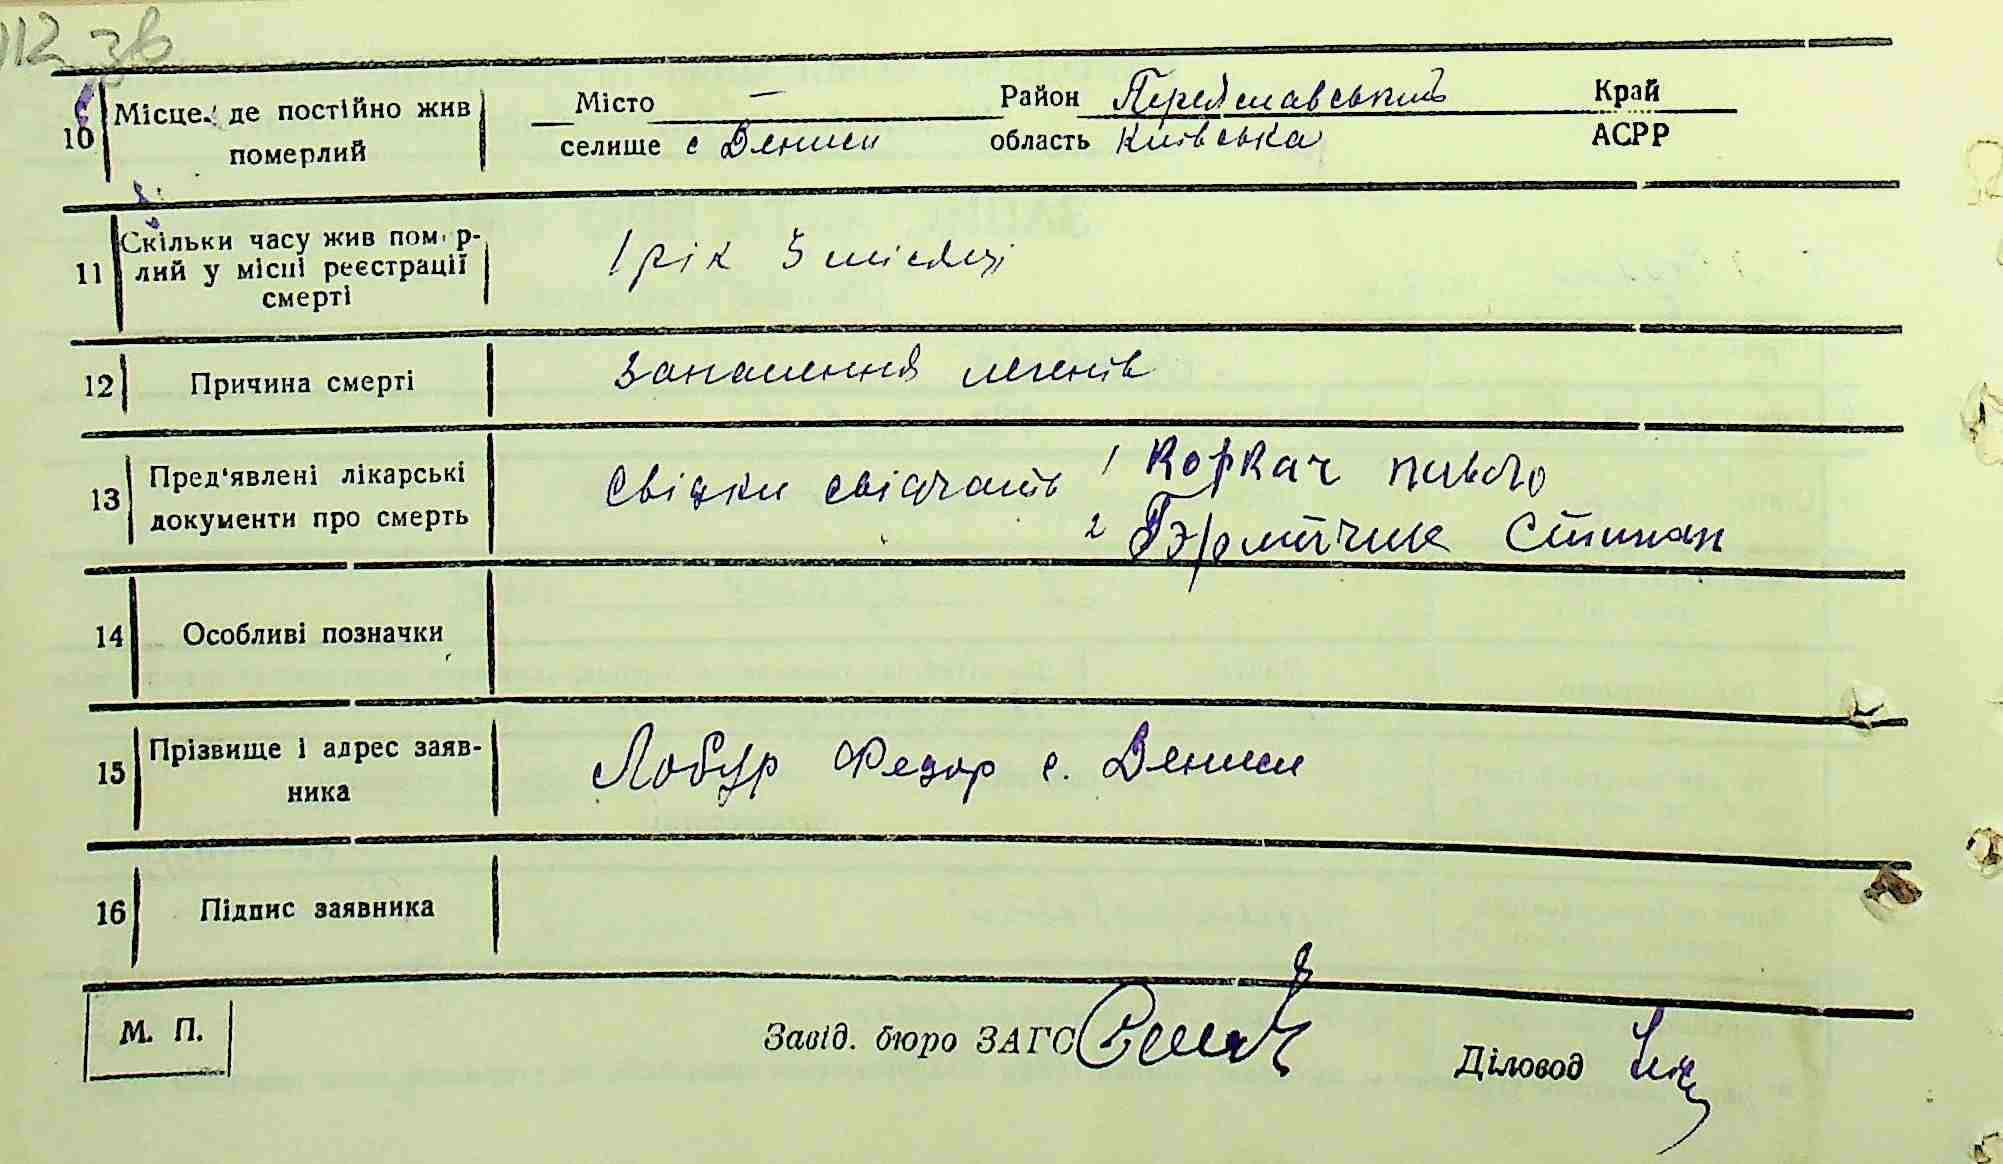 112 зв
10 Місце, де постійно жив померлий Місто — Район Переяславський Край
селище с Дениси область Київська АСРР
11 Скільки часу жив помер-
лий у місці реєстрації
смерті 1 рік 5 місяці
12 Причина смерті Запалення легенів
13 Пред'явлені лікарські
документи про смерть Свідки свідчать 1 Коркач Павло
2 Степан
14 Особливі позначки
15 Прізвище і адрес заяв-
ника Лобур Федор с. Дениси
16 Підпис заявника
М. П. Завід. бюро ЗАГС Діловод